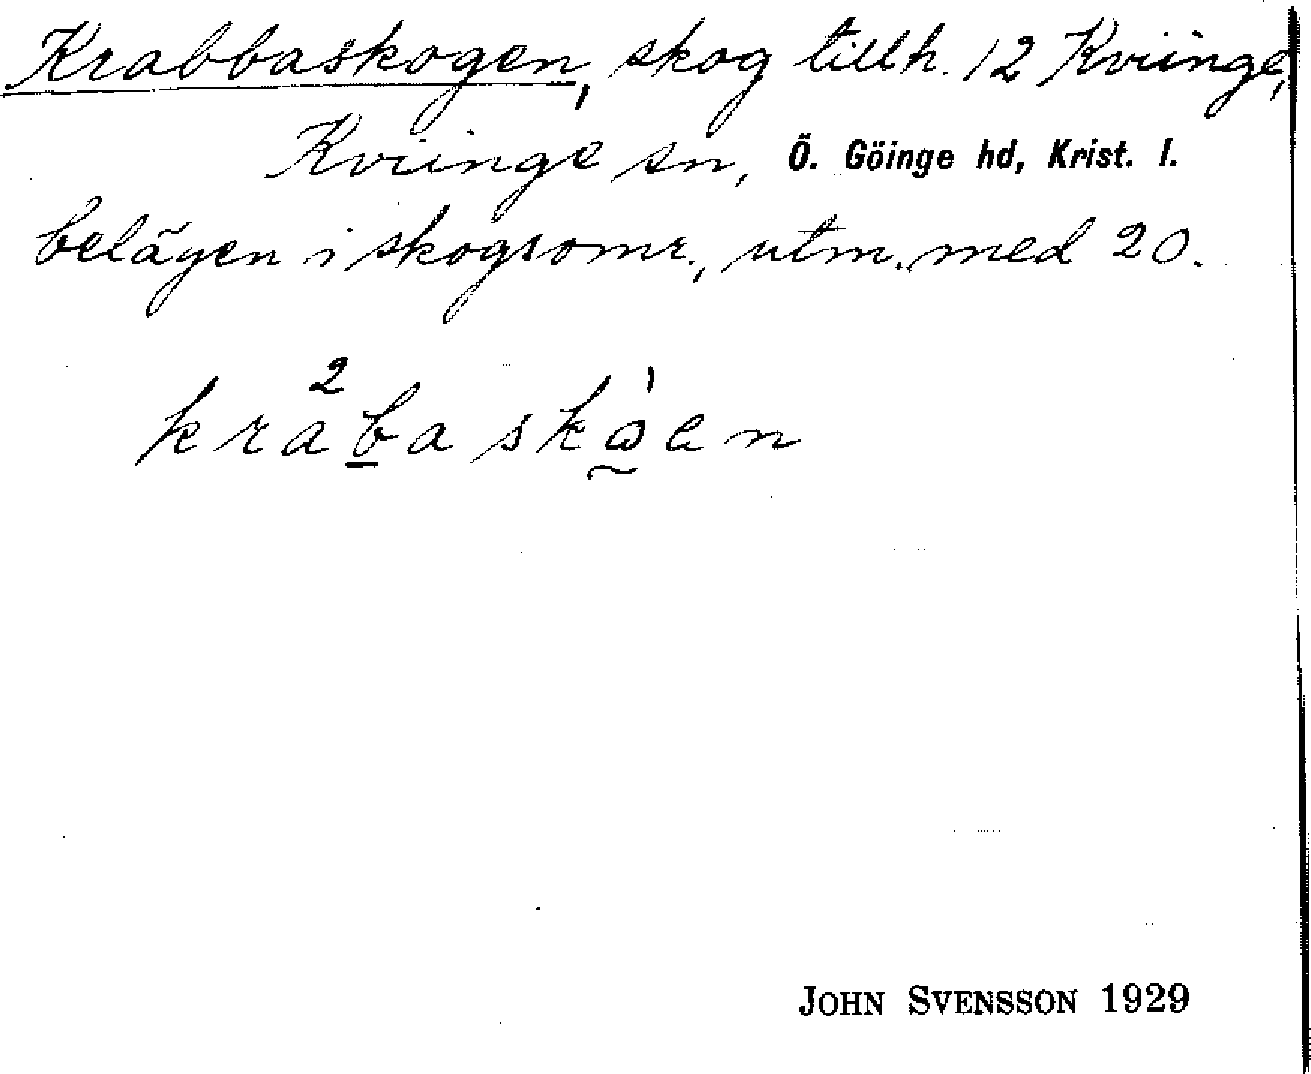 Krabbaskogen, skog tillh. 12 Kviinge,
Kviinge sn, Ö. Göinge hd, Krist. l.
belägen i skogsomr., utm. med 20.
JOHN SVENSSON 1929